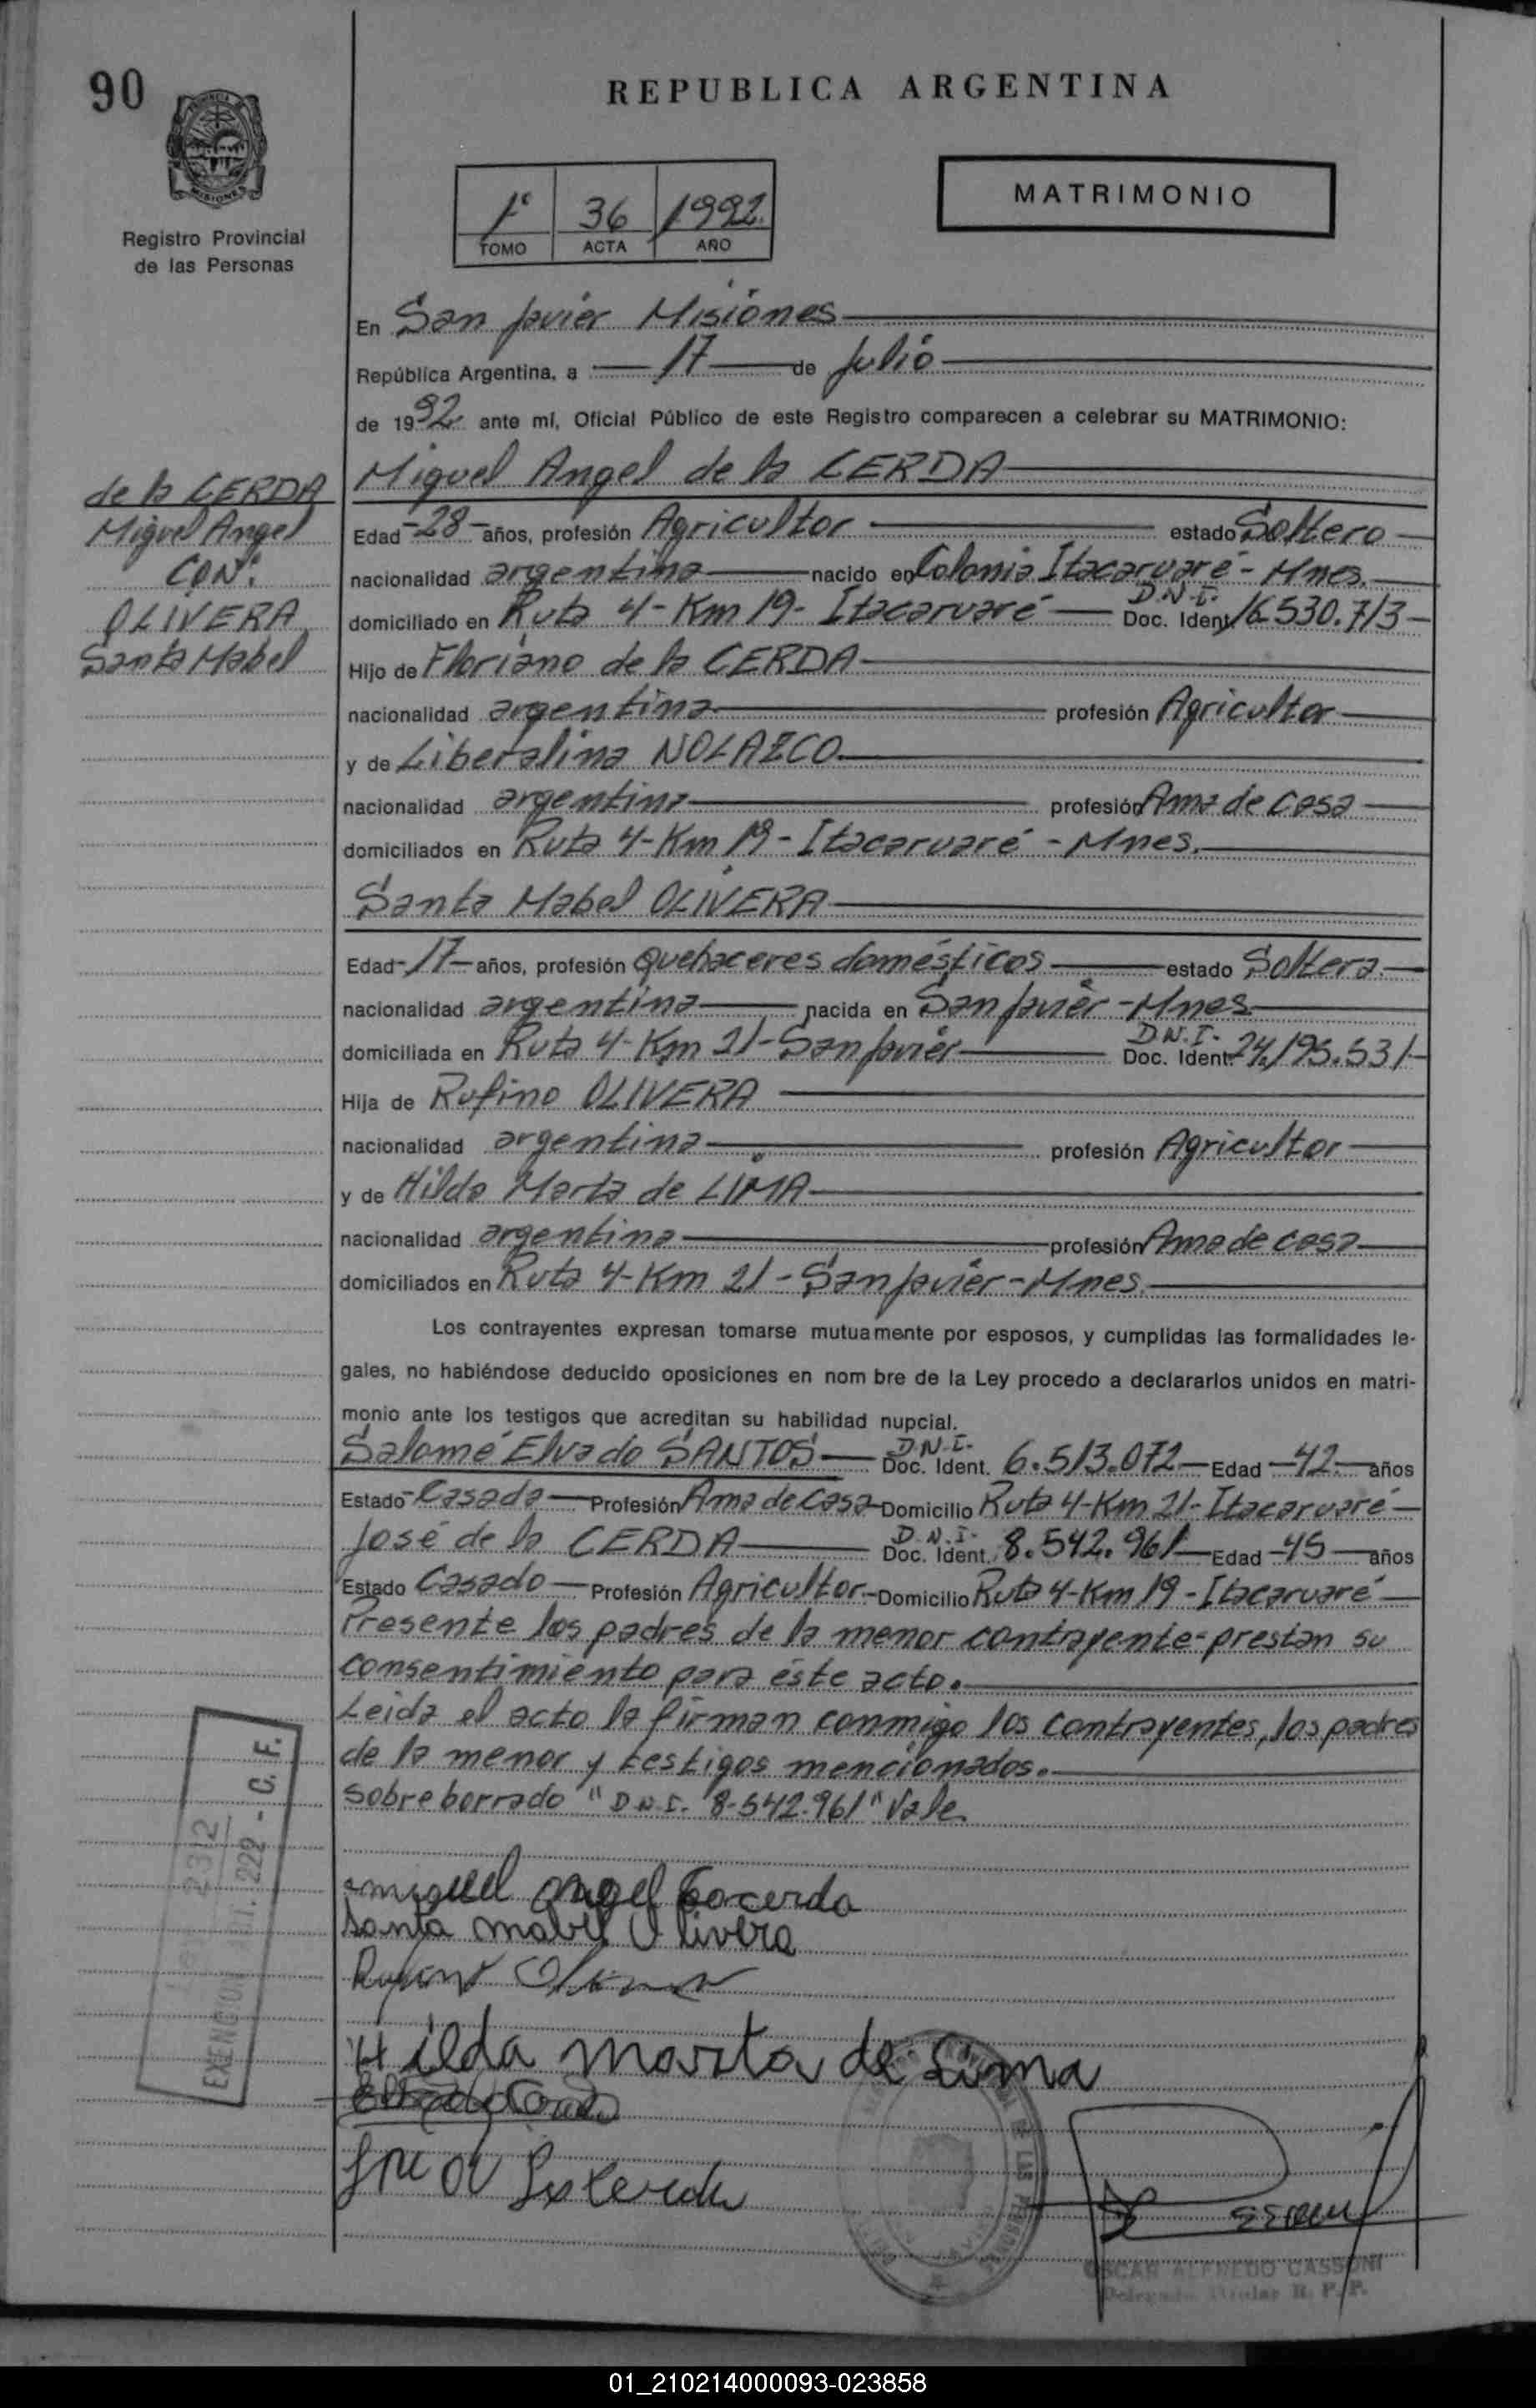 90
REPUBLICA ARGENTINA
MATRIMONIO
1º 36 1992.
TOMO ACTA AÑO
MISIONES
Registro Provincial
de las Personas
En San Javier Misiones
República Argentina, a 17 de Julio
de 1992 ante mí, Oficial Público de este Registro comparecen a celebrar su MATRIMONIO:
de la CERDA
Miguel Angel
CON:
OLIVERA
Santa Mabel
Miguel Angel de la CERDA
Edad -28- años, profesión Agricultor estado Soltero
nacionalidad argentina nacido en Colonia Itacaruaré - Mnes.
domiciliado en Ruta 4 - Km 19 - Itacaruaré D.N.I. Doc. Ident. 16.530.713
Hijo de Floriano de la CERDA
nacionalidad argentina profesión Agricultor
y de Liberalina NOLAZCO
nacionalidad argentina profesión Ama de casa
domiciliados en Ruta 4 - Km 19 - Itacaruaré - Mnes.
Santa Mabel OLIVERA
Edad -17- años, profesión Quehaceres domésticos estado Soltera
nacionalidad argentina nacida en San Javier - Mnes
domiciliada en Ruta 4 - Km 21 - San Javier D.N.I. Doc. Ident. 24.195.531
Hija de Rufino OLIVERA
nacionalidad argentina profesión Agricultor
y de Hilda Marta de LIMA
nacionalidad argentina profesión Ama de casa
domiciliados en Ruta 4 - Km 21 - San Javier - Mnes.
Los contrayentes expresan tomarse mutuamente por esposos, y cumplidas las formalidades le-
gales, no habiéndose deducido oposiciones en nom bre de la Ley procedo a declararlos unidos en matri-
monio ante los testigos que acreditan su habilidad nupcial.
Salomé Elvado SANTOS D.N.I. Doc. Ident. 6.513.072 Edad 42 años
Estado Casada Profesión Ama de casa Domicilio Ruta 4 - Km 21 - Itacaruaré
José de la CERDA D.N.I. Doc. Ident. 8.542.961 Edad 45 años
Estado Casado Profesión Agricultor Domicilio Ruta 4 - Km 19 - Itacaruaré
Presente los padres de la menor contrayente prestan su
consentimiento para éste acto.
Leida el acto la firman conmigo los contrayentes, los padres
de la menor y testigos mencionados.
Sobreborrado "D.N.I. 8.542.961" Vale.
miguel angel Lacerda
Santa mabel Olivera
Rufino Olivera
Hilda marta de Lima
OSCAR ALFREDO CASSONI
Delegado Titular R. P. P.
01_210214000093-023858